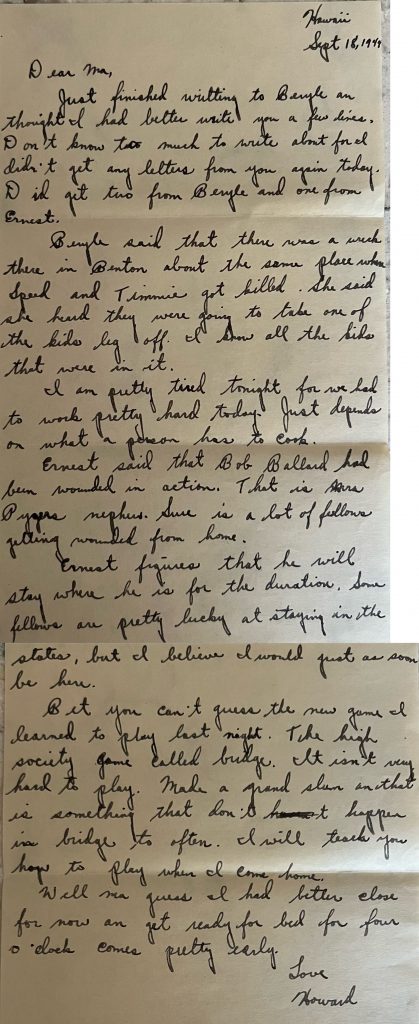 Hawaii
Sept 18, 1944
Dear Ma,
Just finished writting to Beryle an
thought I had better write you a few lines.
Don't know to much to write about for I
didn't get any letters from you again today.
Did get two from Beryle and one from
Ernest.
Beryle said that there was a wreck
there in Benton about the same place when
Speed and Timmie got killed. She said
she heard they were going to take one of
the kids leg off. I know all the kids
that were in it.
I am pretty tired tonight for we had
to work pretty hard today. Just depends
on what a person has to cook.
Ernest said that Bob Ballard had
been wounded in action. That is Mrs
nephew. Sure is a lot of fellows
getting wounded from home.
Ernest figures that he will
stay where he is for the duration. Some
fellows are pretty lucky at staying in the
states, but I believe I would just as soon
be here.
Bet you can't guess the new game I
learned to play last night. The high
society game called bridge. It isn't very
hard to play. Made a grand slum an that
is something that don't happen
in bridge to often. I will teach you
how to play when I come home.
Well ma guess I had better close
for now an get ready for bed for four
o'clock comes pretty early.
Love
Howard